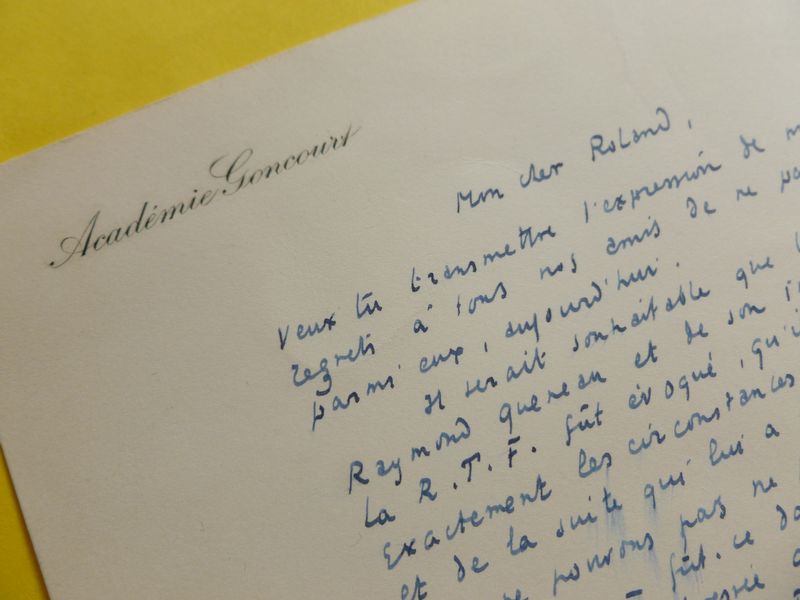 Académie Goncourt
Mon cher Roland,
Veux tu transmettre l'expression de
regrets à tous nos amis de ne
parmi eux, aujourd'hui.
Il serait souhaitable que
Raymond Queneau et de son
la R.T.F. fût évoqué, qu'
Exactement les circonstances
et de la suite qui lui a
pouvons pas ne
fût. ce